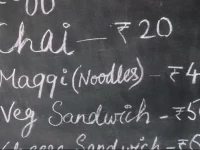 Chai - ₹20
Maggi (Noodles) - ₹4
Veg Sandwich - ₹5
Sandwich - ₹